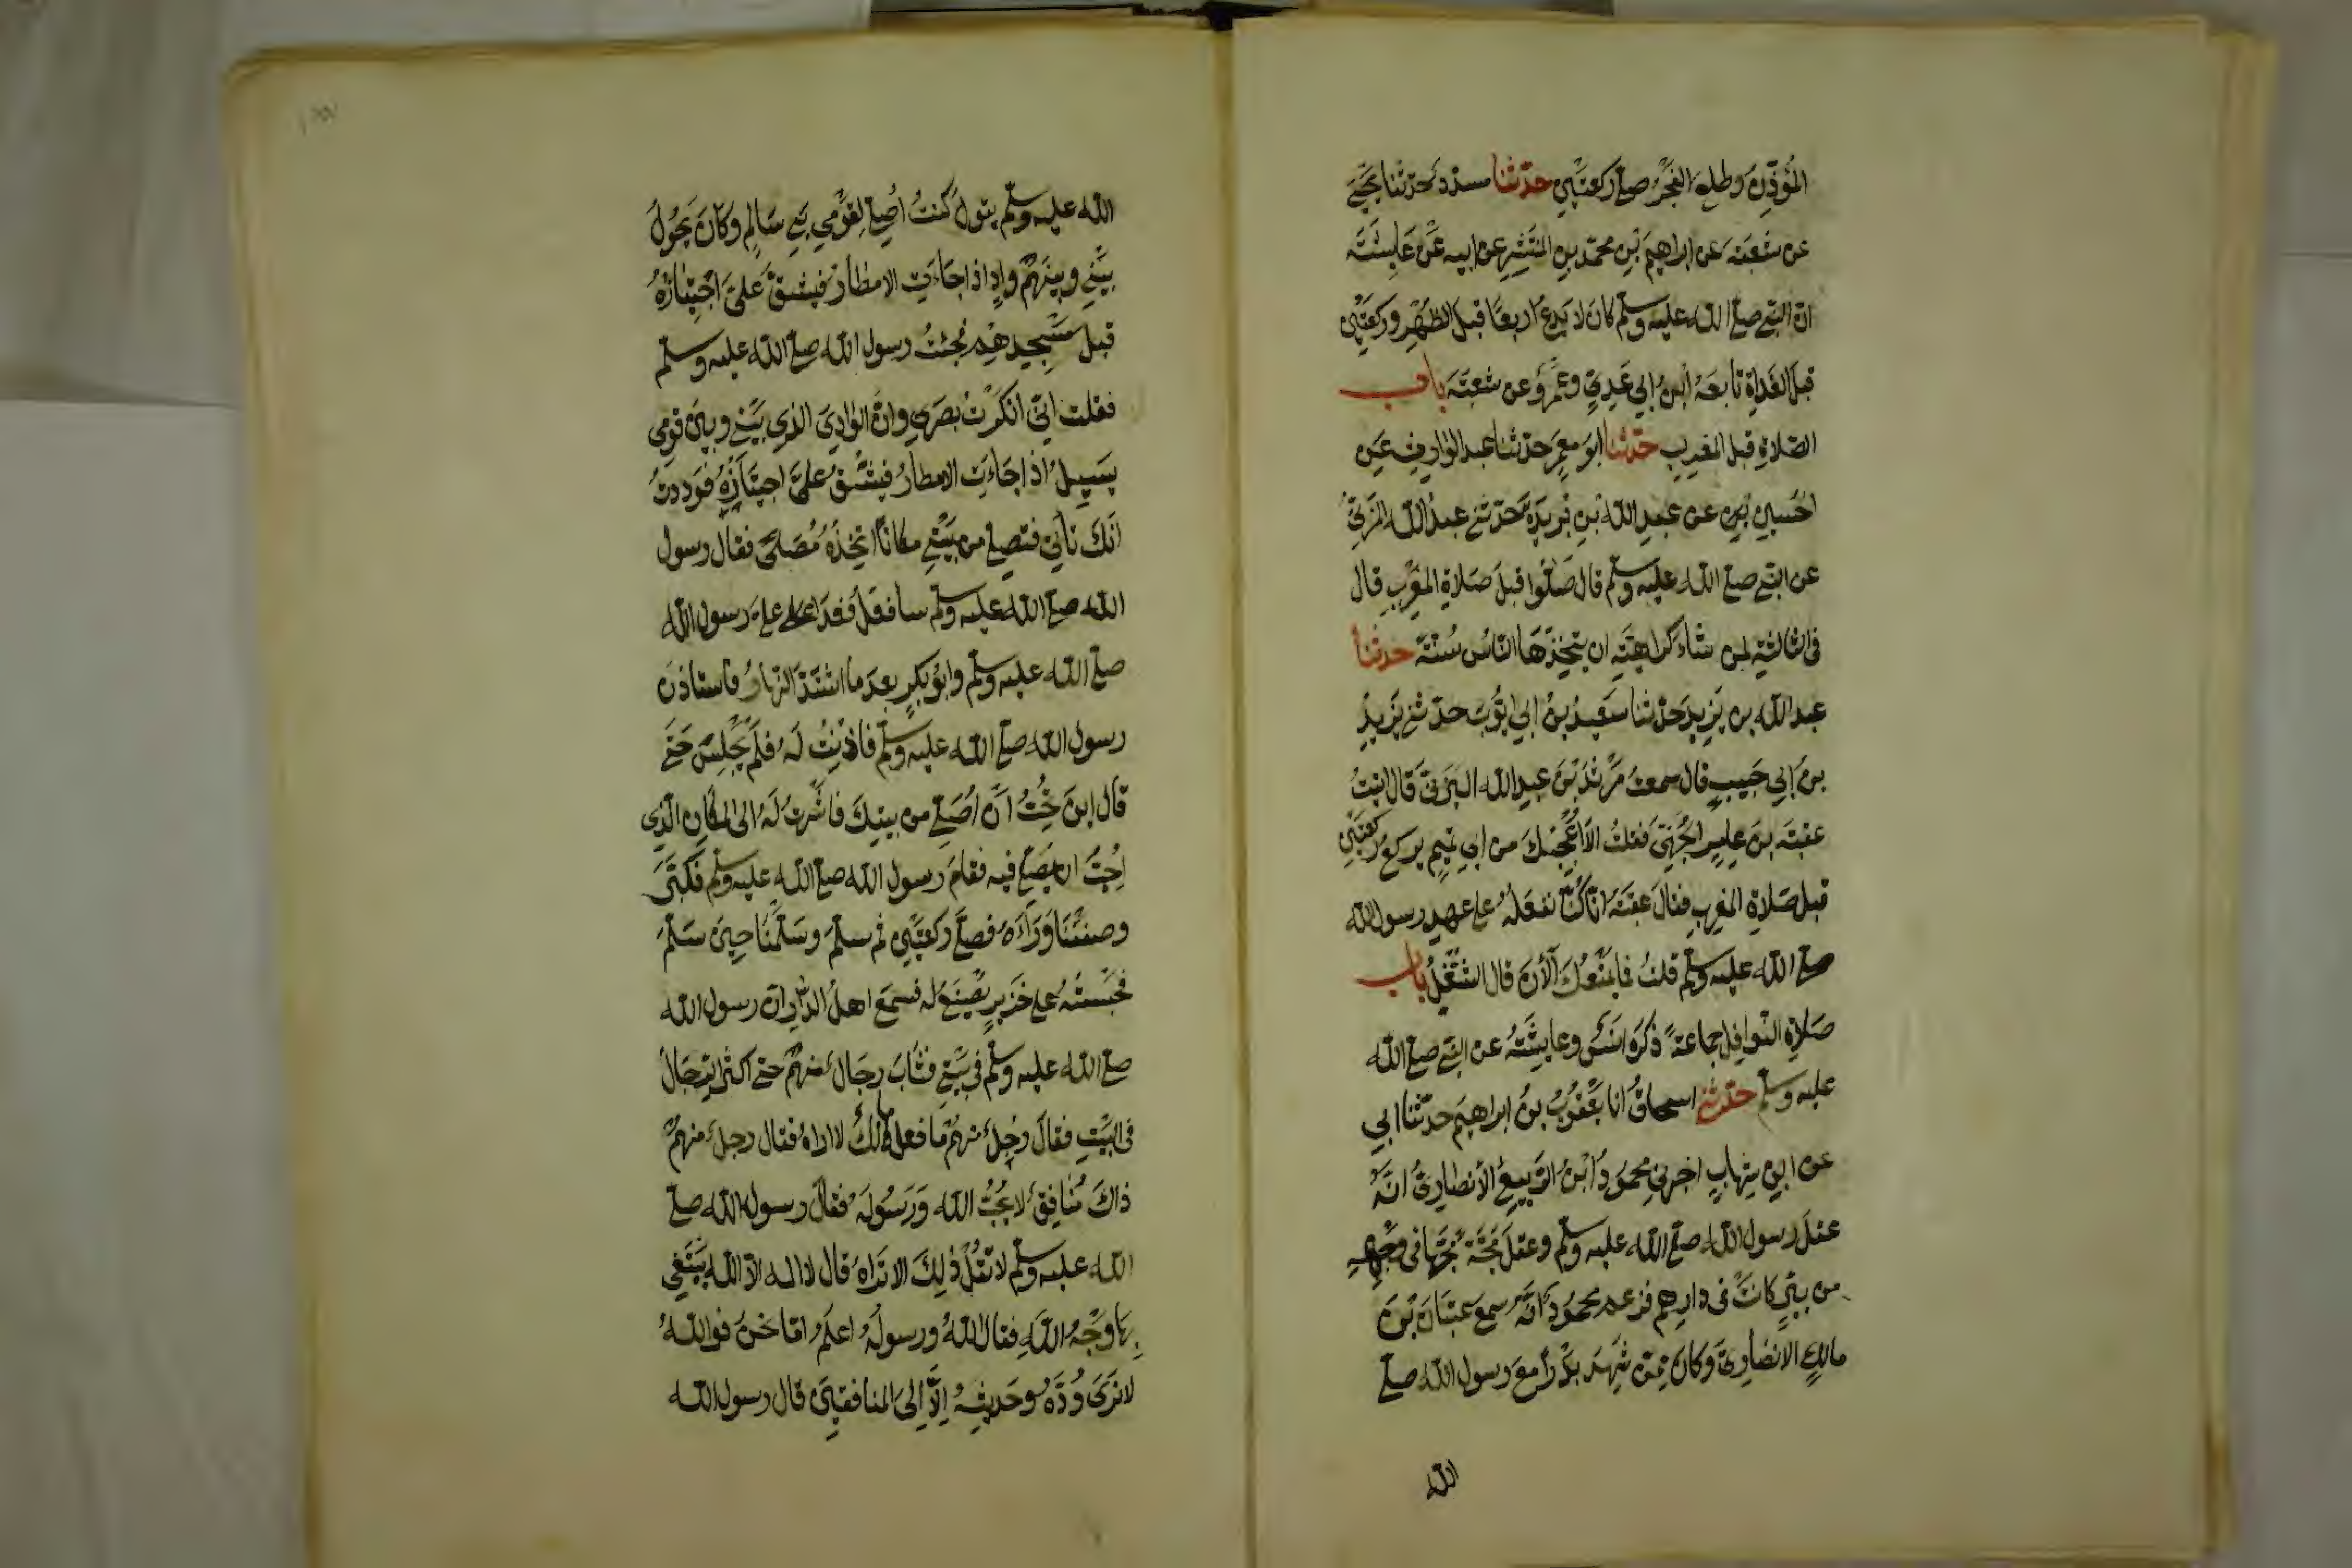 المُؤذِّنُ وطلع الفجرُ صلّى ركعتَيْنِ حدّثنا مسدّدٌ حدّثنا يَحْيَى
عن شعبَةَ عن ابراهيمَ بْنِ محمّد بن المُنْتَشِرِ عن ابيه عَنْ عَايِشَةَ
انّ النبيّ صلى الله عليه وسلم كانَ لا يَدَعُ اربعًا قبلَ الظُّهْرِ وركعتَيْنِ
قبلَ الغَدَاةِ تابعَهُ ابنُ ابي عَدِيّ وعَمْرٌو عن شعبَةَ باب
الصّلاةِ قبلَ المغربِ حدّثنا ابو معمَر حدثنا عبد الوارث عَنِ
الحُسَينِ عن عبدِ الله بْنِ بُرَيدَةَ حدّثني عبدُ الله المُزَنيُّ
عن النبي صلى الله عليه وسلم قال صَلُّوا قبلَ صَلاةِ المغرِبِ قال
فى الثالثةِ لمن شاءَ كراهيَةَ ان يتّخِذَهَا النّاسُ سُنّةً حدثنا
عبد الله بن يزيدَ حدّثنا سَعِيدُ بنُ ابي ايّوبَ حدّثني يَزِيدُ
بنُ ابي حَبيبٍ قال سمعتُ مَرْثَدَ بْنَ عبدِ الله اليَزَنيّ قال اتيتُ
عقبَةَ بنَ عامِرٍ الجُهَنيّ فقلتُ الَا اُعْجِبُكَ من ابي تميم يركعُ ركعتَيْنِ
قبل صَلاةِ المغربِ فقال عقبَةُ انّا كُنّا نفعَلُهُ على عهدِ رسول الله
صلى الله عليه وسلم قلتُ فما يَمْنَعُكَ الآنَ قال الشُّغْلُ باب
صَلاةِ النّوافِلِ جماعَةً ذكَرَه انَسٌ وعايِشَةُ عن النبي صلى الله
عليه وسلم حدّثني اسحاقُ انا يَعْقُوبُ بنُ ابراهيمَ حدّثنا ابي
عن ابنِ شِهابٍ اخبرني محمُودُ ابْنُ الرّبيعِ الأنصارِيُّ انّهُ
عقلَ رسول الله صلى الله عليه وسلم وعقلَ مَجّةً مَجّهَا في وجْهِهِ
من بِيرٍ كانَتْ في دارِهم فزعم محمُودٌ انّه سمِعَ عتبَانَ بْنَ
مالكٍ الانصَارِيّ وكانَ ممّن شَهِدَ بدرًا معَ رسول الله صلى
الله
الله عليه وسلم يقول كُنتُ اُصلّي لِقَوْمي بَني سَالِمٍ وكانَ يَحُولُ
بيْنِي وبينَهُمْ وادٍ اذا جَاءَتِ الامطارُ فيشقّ عَلَيّ اجْتِيَازُهُ
قِبَلَ مَسْجِدِهِم فجئتُ رسول الله صلى الله عليه وسلم
فقلت انّي انكَرْتُ بصَرِي وانّ الوَادِيَ الذي بَيْني وبينَ قومي
يَسِيلُ اذا جَاءَتِ الامطارُ فيَشُقُّ عَلَيّ اجتيَازُهُ فوَدِدتُ
انّكَ تأتي فتصلّي من بَيْتي مكانًا اتّخِذُهُ مُصَلًّى فقال رسول
الله صلى الله عليه وسلم سافعَلُ فغدَا علي رسول الله
صلى الله عليه وسلم وابُو بَكرٍ بعدَ ما اشتَدّ النّهَارُ فاستاذَنَ
رسول الله صلى الله عليه وسلم فاذِنْتُ لَه فلَمْ يَجْلِسْ حتّى
قال اين تُحِبُّ أنْ اُصَلّي من بيتِكَ فاشَرْتُ لَهُ الى المكانِ الّذي
اُحِبّ ان يُصَلّي فيه فقامَ رسول الله صلى الله عليه وسلم فكبّرَ
وصففْنَا وَرَاءَهُ فصلّى ركعتَيْنِ ثم سلّمَ وسَلّمْنَا حِينَ سَلّمَ
فحَبَستُهُ على خَزِيرٍ يُصْنَعُ له فسَمِعَ اهلُ الدّارِ انّ رسول الله
صلى الله عليه وسلم في بَيْتي فثَابَ رِجَالٌ منهُمْ حتى اكثر الرّجَالُ
في البَيْتِ فقالَ رَجُلٌ منهُمْ ما فعل مالكٌ لا اراهُ فقال رجلٌ منهُمْ
ذاكَ مُنافِقٌ لا يُحِبُّ الله وَرَسُولَهُ فقال رسول الله صلى
الله عليه وسلم لا تَقُلْ ذلكَ الا تَراهُ قال لا اله الّا الله يَبْتَغي
بِهَا وَجْهَ اللهِ فقال اللهُ ورسولُهُ اعلَمُ امّا نحْنُ فوالله
لا نَرَى وُدّهُ وحَدِيثَهُ اِلّا اِلى المنافقينَ قال رسول الله